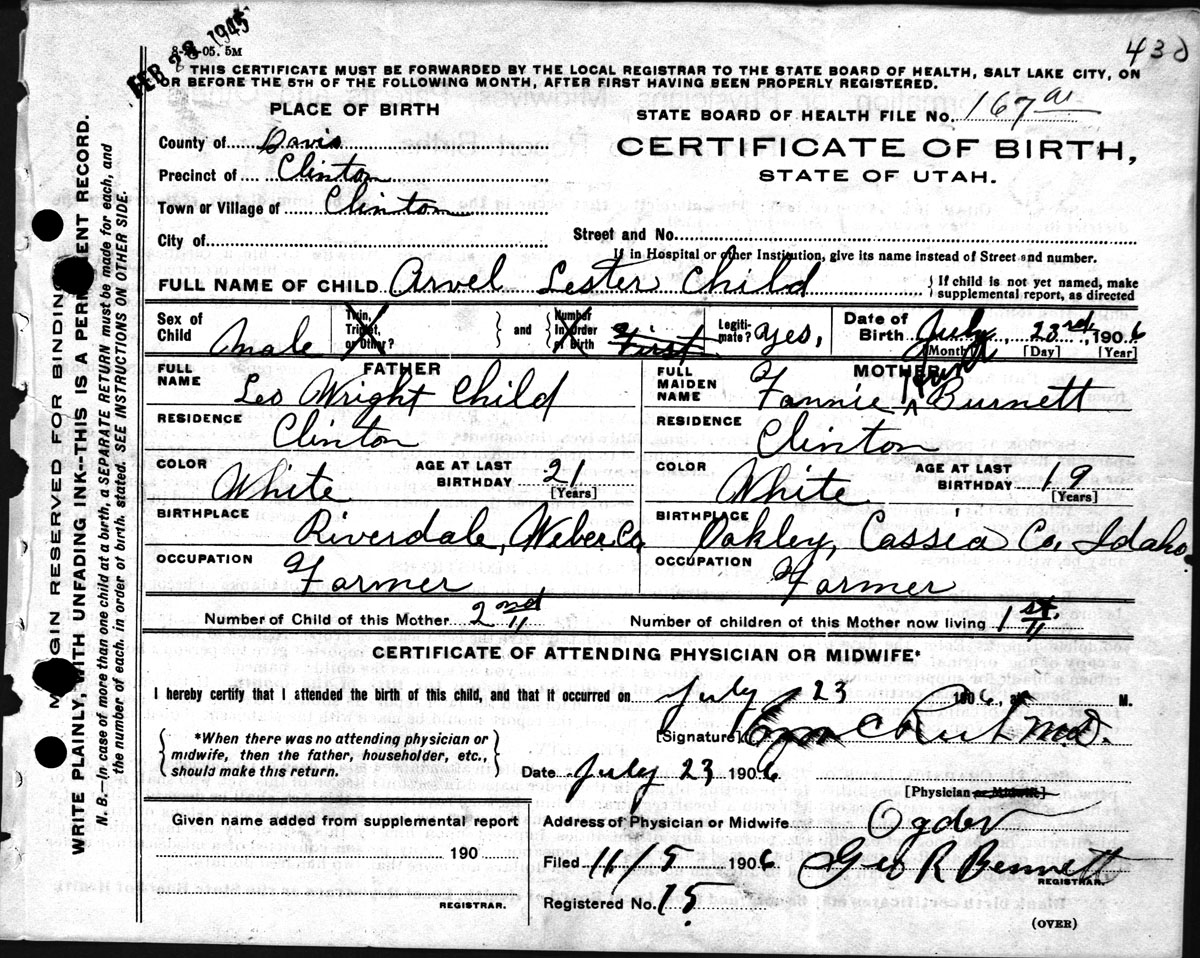 FEB 28 1945
430
8- -05. 5M
THIS CERTIFICATE MUST BE FORWARDED BY THE LOCAL REGISTRAR TO THE STATE BOARD OF HEALTH, SALT LAKE CITY, ON
OR BEFORE THE 5TH OF THE FOLLOWING MONTH, AFTER FIRST HAVING BEEN PROPERLY REGISTERED.
PLACE OF BIRTH
STATE BOARD OF HEALTH FILE No. 167
County of Davis
CERTIFICATE OF BIRTH,
Precinct of Clinton
STATE OF UTAH.
Town or Village of Clinton
City of
Street and No.
If in Hospital or other Institution, give its name instead of Street and number.
FULL NAME OF CHILD Arvel Lester Child
{ If child is not yet named, make
supplemental report, as directed
Sex of Child Male
Twin, Triplet, or Other? } and { Number in Order of Birth First
Legitimate? yes,
Date of Birth July 23rd, 1906
[Month] [Day] [Year]
FATHER
FULL NAME Leo Wright Child
RESIDENCE Clinton
COLOR White
AGE AT LAST BIRTHDAY 21
[Years]
BIRTHPLACE Riverdale, Weber Co,
OCCUPATION Farmer
MOTHER
FULL MAIDEN NAME Fannie Burnett
RESIDENCE Clinton
COLOR White
AGE AT LAST BIRTHDAY 19
[Years]
BIRTHPLACE Oakley, Cassia Co, Idaho
OCCUPATION Farmer
Number of Child of this Mother 2nd
Number of children of this Mother now living 1st.
CERTIFICATE OF ATTENDING PHYSICIAN OR MIDWIFE*
I hereby certify that I attended the birth of this child, and that it occurred on July 23 1906, at M.
[Signature] M.D.
{ *When there was no attending physician or
midwife, then the father, householder, etc.,
should make this return. }
Date July 23 1906
[Physician or Midwife]
Given name added from supplemental report
190
REGISTRAR.
Address of Physician or Midwife Ogden
Filed 11/5 1906 Geo R Bennett
REGISTRAR.
Registered No. 15
(OVER)
MARGIN RESERVED FOR BINDING
WRITE PLAINLY, WITH UNFADING INK--THIS IS A PERMANENT RECORD.
N. B.—In case of more than one child at a birth, a SEPARATE RETURN must be made for each, and
the number of each, in order of birth, stated. SEE INSTRUCTIONS ON OTHER SIDE.